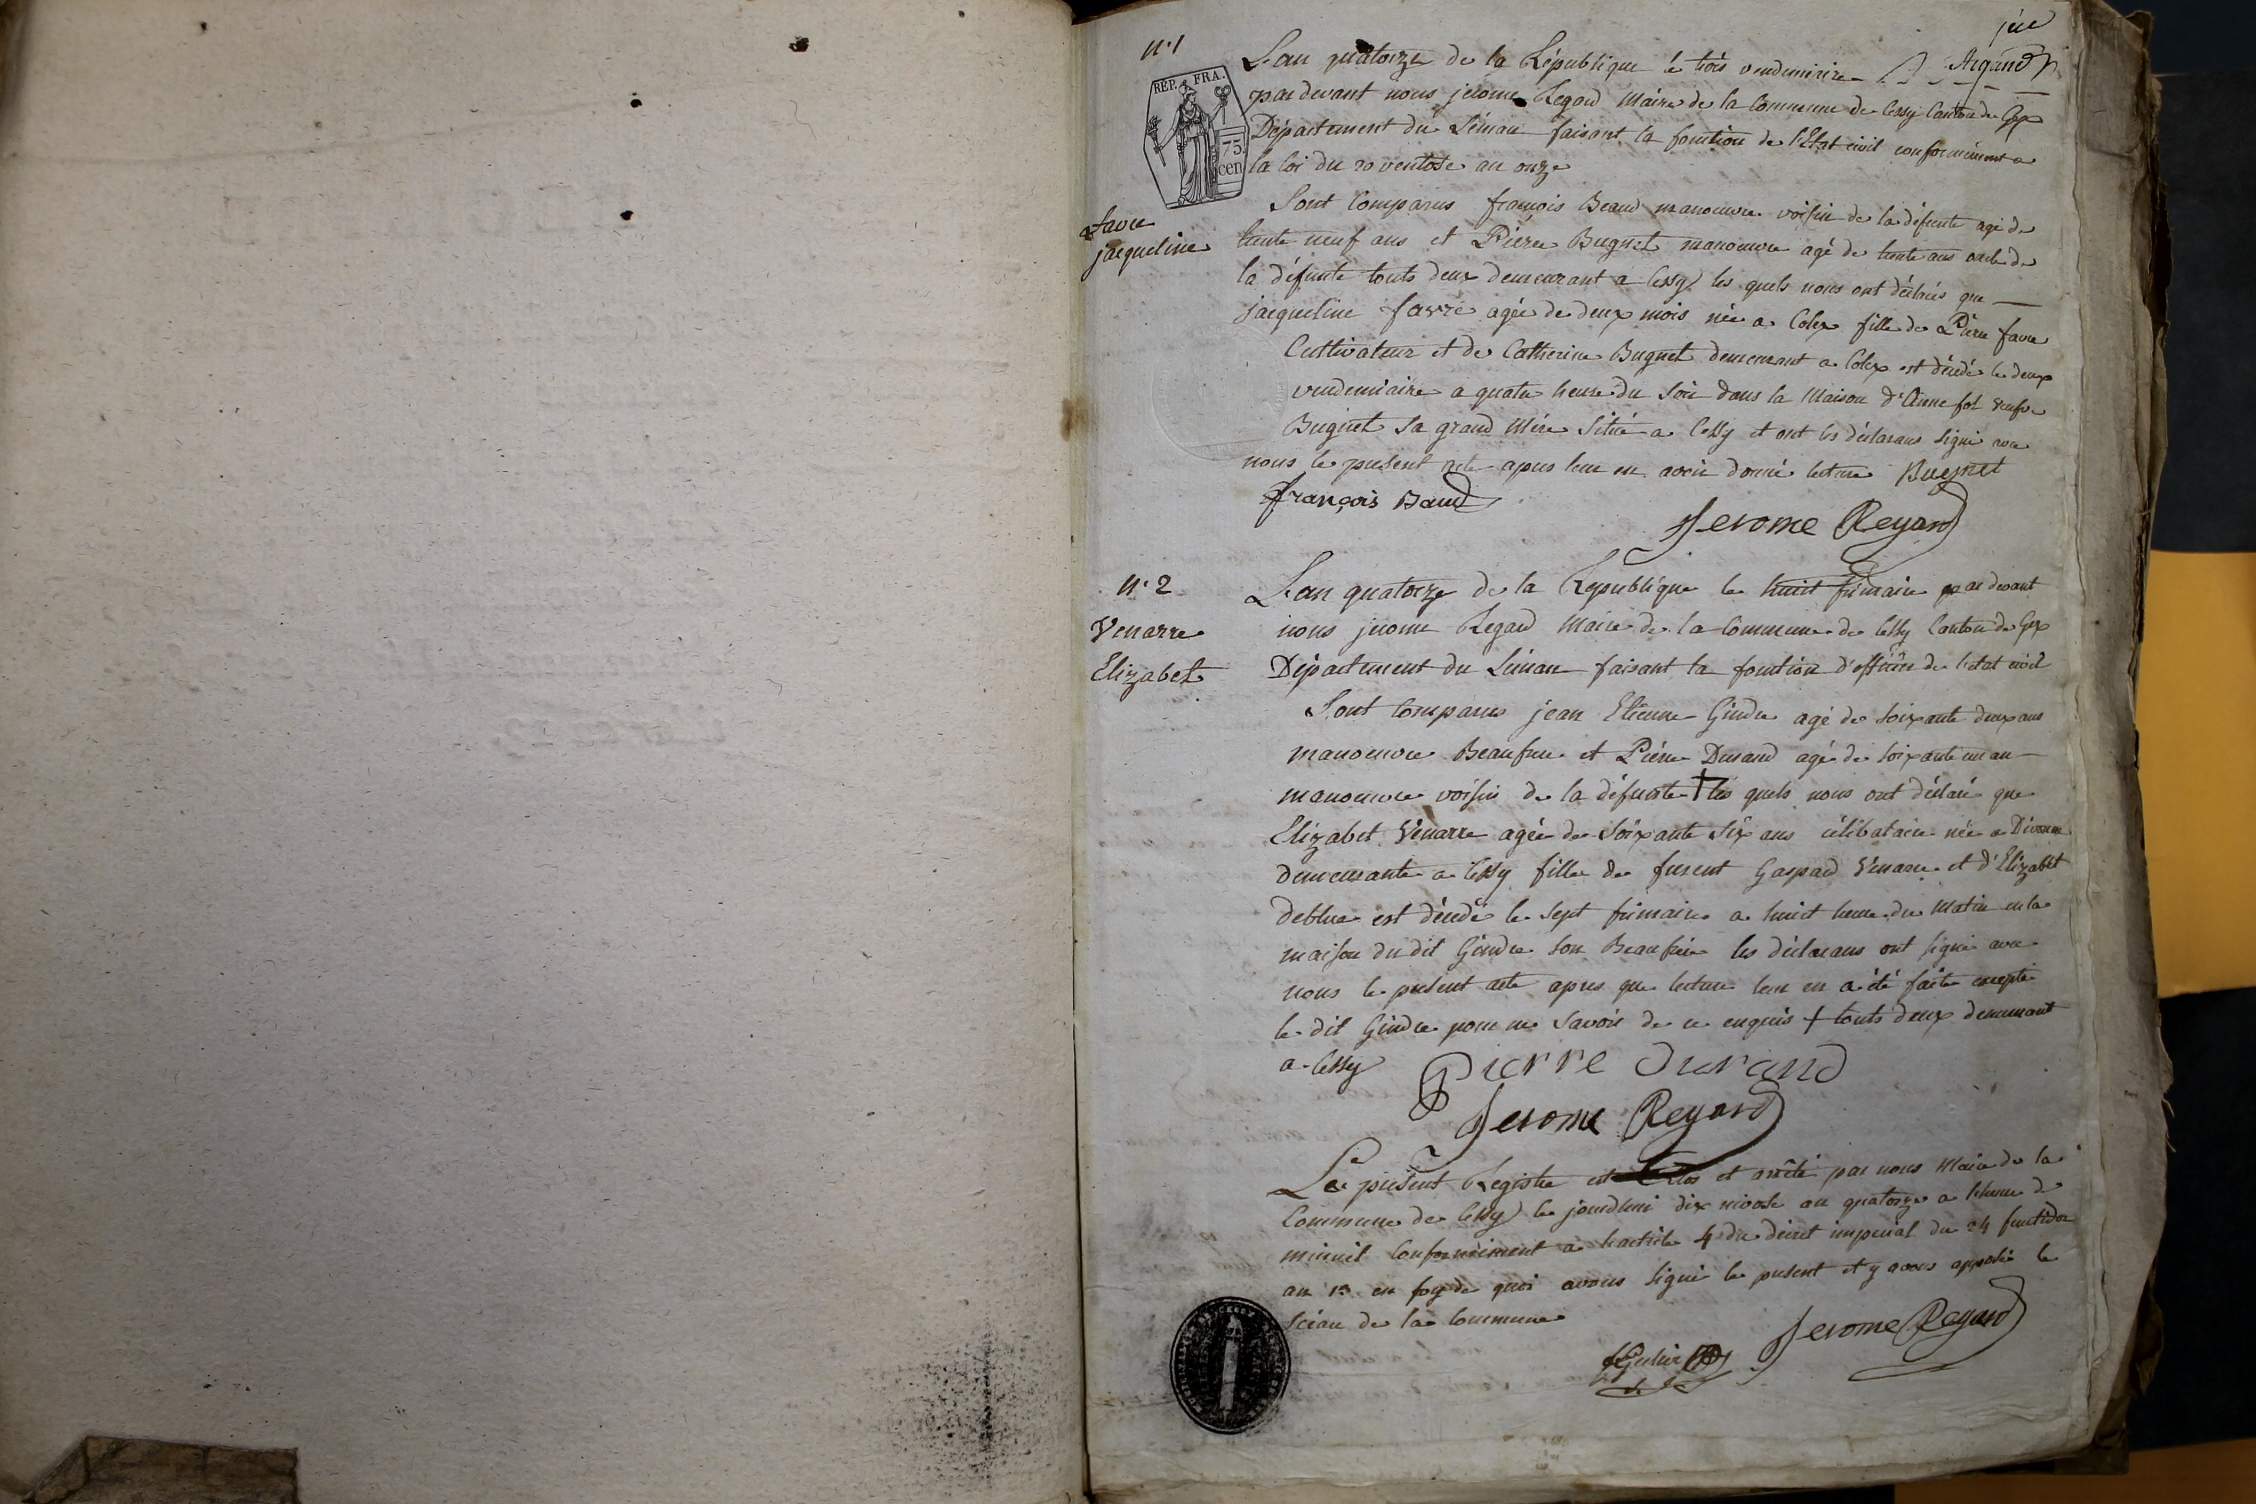 N.° 1
L'an quatorze de la République le trois vendemiaire
Argand
REP. FRA.
75.
cen
par devant nous jerome Regard Maire de la Commune de Cessy Canton de Gex
Département du Léman faisant la fonction de l'Etat civil conformément a
la loi du 20 ventose an onze
favre
jacqueline
Sont Comparus françois Beaud manoeuvre voisin de la défunte agé de
trente neuf ans et Piérre Bugnet manoeuvre agé de trente ans oncle de
la défunte touts deux demeurant a Cessy les quels nous ont déclarés que
jacqueline favre agée de deux mois née a Colex fille de Piérre favre
Cultivateur et de Catherine Bugnet demeurant a Colex est décédé le deux
vendemiaire a quatre heure du Soir dans la Maison d'Anne fol veufve
Bugnet Sa grand Mére Sitúé a Cessy et ont les déclarans signé avec
nous le present acte apres leur en avoir donné lecture Bugnet
françois Baud
Jerome Regard
N.° 2
Venarre
Elizabet
L'an quatorze de la République le huit frimaire par devant
nous jerome Regard Maire de la Commune de Cessy Canton de Gex
Département du Léman faisant la fonction d'officier de l'etat civil
Sont Comparus jean Etienne Gindre agé de Soixante deux ans
manoeuvre Beaufrere et Piérre Durand agé de Soixante un an
manoeuvre voisin de la défunte † les quels nous ont déclaré que
Elizabet Venarre agée de Soixante Six ans célibataire née a Divonne
demeurante a Cessy fille de furent Gaspard Venarre et d'Elizabet
deblue est décédé le Sept frimaire a huit heure du Matin en la
maison du dit Gindre Son Beaufrére les déclarans ont signé avec
nous le present acte apres que lecture leur en a été faite excepté
le dit Gindre pour ne Savoir de ce enquis † touts deux demeurant
a Cessy
Pierre Durand
Jerome Regard
Le présent Registre est Clos et arrêté par nous Maire de la
Commune de Cessy le jourdhui dix nivose an quatorze a l'heure de
minuit Conformément a l'article 4 du décret imperial du 24 fructidor
an 13 en foy de quoi avons signé le present et y avons apposés le
Sceau de la Commune
Jerome Regard